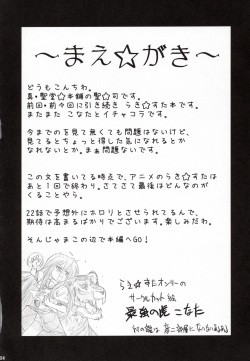 ～まえ☆がき～
どうもこんちわ。
真・聖堂☆本舗の聖☆司です。
前回・前々回に引き続き らき☆すた本です。
またまた こなたとイチャコラです。
今までのを見て無くても問題はないけど、
見てるとちょっと得した気になれるとか
なれないとか。まぁ問題ないです。
この文を書いてる時点で、アニメのらき☆すたは
あと１回で終わり。さてさて最後はどんなのが
くることやら。
22話で予想外にホロリとさせられてるんで、
期待は高まるばかりでございます。楽しみだわ。
そんじゃまこの辺で本編へGO！
らき☆すたオンリーの
サークルカット絵
最強の虎 こなた
04